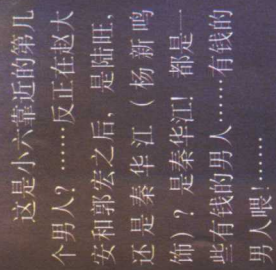 这是小六靠近的第几
个男人？……反正在赵大
安和郭宏之后，是陆旺，
还是秦华江（杨新鸣
饰）？是秦华江！都是一
些有钱的男人……有钱的
男人喂！……